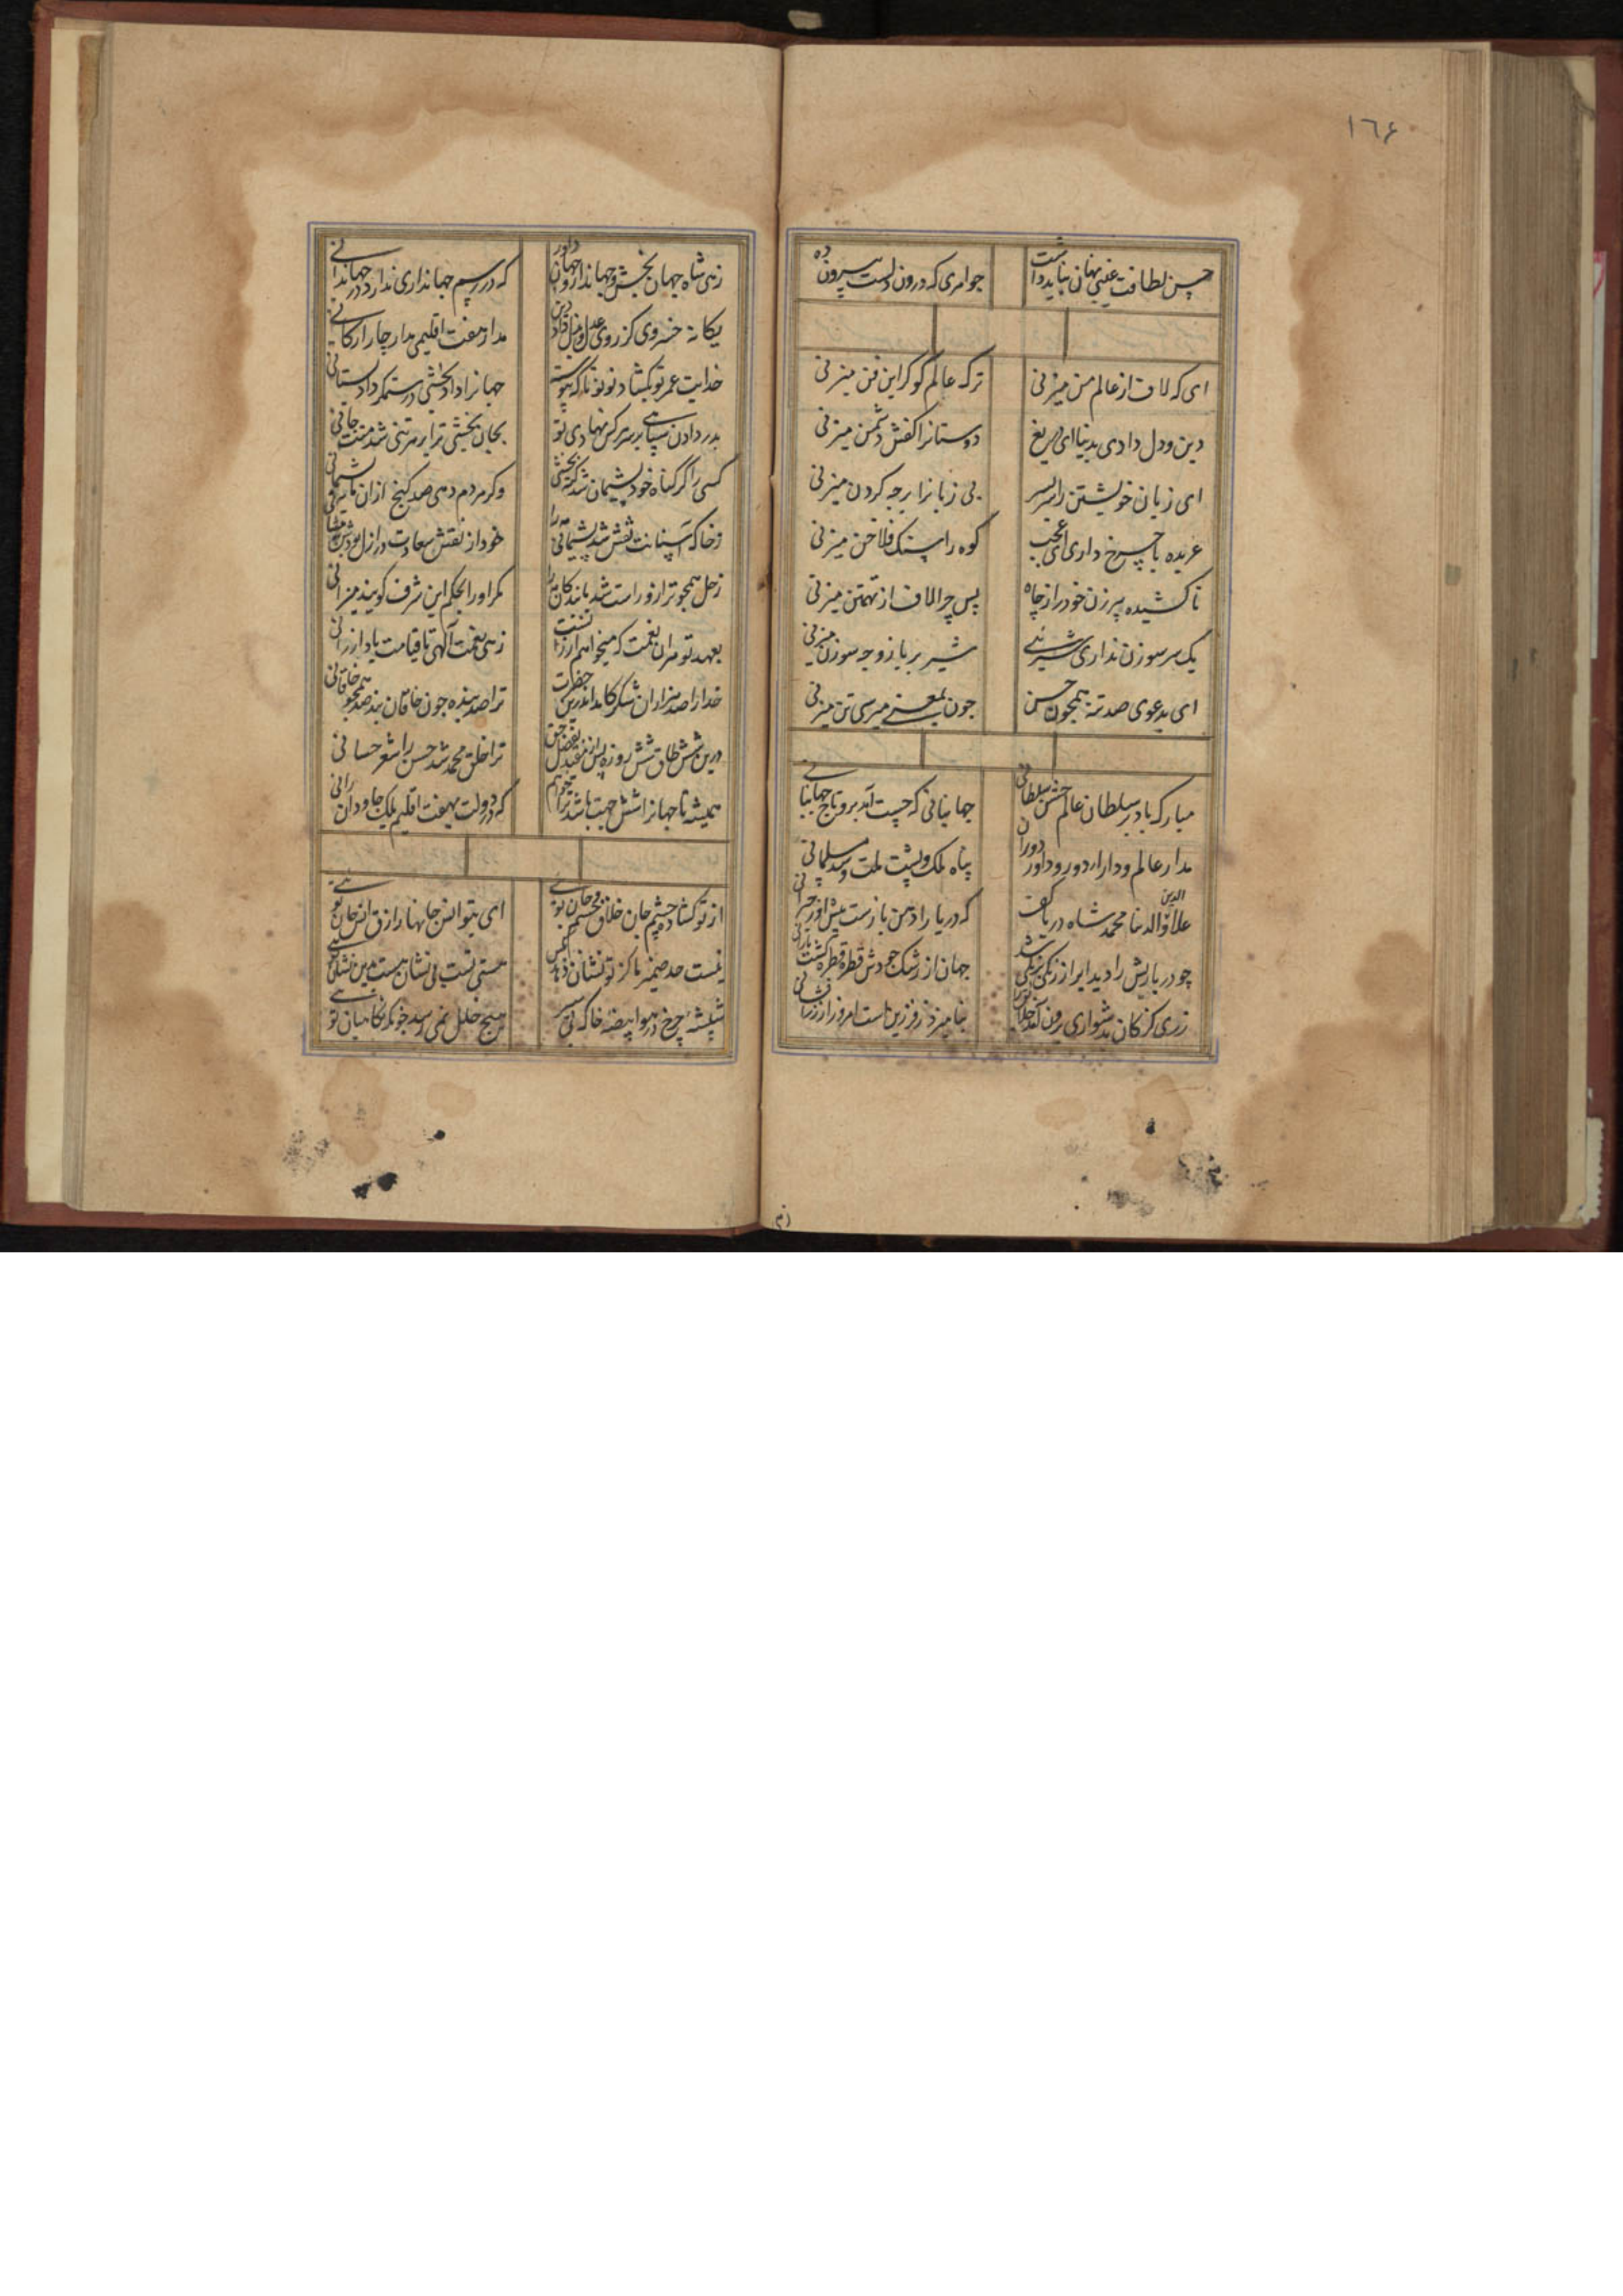 ١٦٤
حسن لطافت غیبی نهان نباید داشت جواهری که درون دلست بیرون ده
ای که لاف از عالم من میزنی ترک عالم گو گر این فن میزنی
دین و دل دادی بدنیا ای دریغ دوستانرا کفش دشمن میزنی
ای زبان خویشتن را سربسر بی زبانرا برچه کردن میزنی
عربده با چرخ داری ای عجب کوه را سنک فلاخن میزنی
ناکشیده پیرزن خود را ز چاه پس چرا لاف از تهمتن میزنی
یک سر سوزن نداری شیرئی شیر بر بازو چه سوزن میزنی
ای بدعوی صد تنه همچون حسن چون بمعنی میرسی تن میزنی
مبارک باد بر سلطان عالم جشن سلطانی جهانبانی که چست آمد برو تاج جهانبانی
مدار عالم و دارا دور و داور دوران پناه ملک و پشت ملت و سد مسلمانی
علاء الدنیا والدین محمد شاه دریا کف که دریا را دهن بازست پیش او ز حیرانی
چو دربارش را دید ابر از زنگی بزنگی شد جهان از رشک جودش قطره قطره گشت بارانی
زری کز کان بدشواری برون آمد خلایق را بنامیزد ز فر زین است امروز از زرافشانی
زهی شاه جهان بخش و جهاندار و جهان داور که در رسم جهانداری ندارد در جهان ثانی
یکانه خسروی کز روی عدل و بذل و داد و دین مدار هفت اقلیمی مدار چار ارکانی
خدایت عمر تو بکشاد نوبتو تا که پیوسته جهانرا داد بخشی در ستم کرداد بستانی
بدر دادن سپاسی بر سر هر کس نهادی تو بجان بخشی ترا بر هر تنی شد منت جانی
کسی را کر کناه خود پشیمان شد بخشی وکر مردم دهی صد کنج ازان نایدپشیمانی
ز خاک آستانت نقش شد پیشانی مه را خود از نقش سعادت در ازل بودش
زحل همچو ترازو راست شد با بندکان را مکر او را بحکم این شرف کویند میزانی
بعهد تو مران نعمت که میخواهم ارزانست زهی نعمت الهی تا قیامت باد ارزانی
خدا را صد هزاران شکر کامد اندرین حضرت ترا صد بنده چون خاقان بنده صد همچو خاقانی
درین شش طاق شش روزه پس از بفضل حق ترا خلق محمد شد حسن را شعر حسانی
همیشه تا جهانرا شش جهت باشد ترا خواهم که در دولت بهفت اقلیم ملک جاودان رانی
از تو کشاده چشم جان خلاق جسم و جان توئی ای بتو انس جانها رازق انس جان توئی
نیست حد ضمیر ما کز تو نشان دهد کس هستی تست بی نشان هست همین نشان توئی
شیشه چرخ در هوا بیضه خاک بی سپر هیچ خلل نمی رسد چونکه نکاهبان توئی